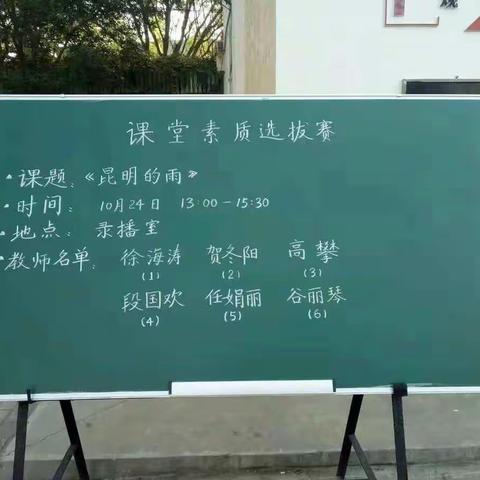 课堂素质选拔赛
·课题：《昆明的雨》
·时间： 10月24日 13:00-15:30
·地点： 录播室
·教师名单： 徐海涛 贺冬阳 高攀
(1) (2) (3)
段国欢 任娟丽 谷丽琴
(4) (5) (6)